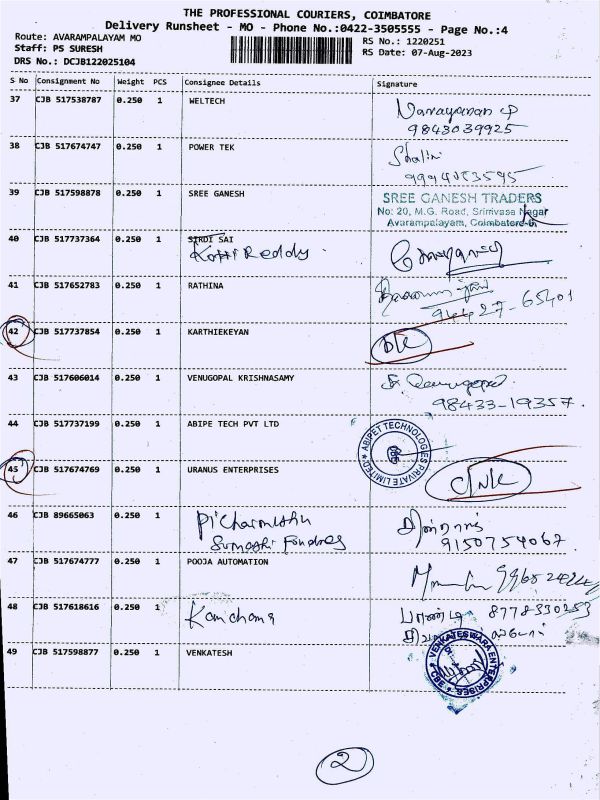 THE PROFESSIONAL COURIERS, COIMBATORE
Delivery Runsheet - MO - Phone No.:0422-3505555 - Page No.:4
Route: AVARAMPALAYAM MO
RS No.: 1220251
Staff: PS SURESH
RS Date: 07-Aug-2023
DRS No.: DCJB122025104
S No Consignment No Weight PCS Consignee Details Signature
37 CJB 517538787 0.250 1 WELTECH Narayanan P
9843039925
38 CJB 517674747 0.250 1 POWER TEK Shalini
39 CJB 517598878 0.250 1 SREE GANESH SREE GANESH TRADERS
No: 20, M.G. Road, Srinivasa Nagar
Avarampalayam, Coimbatore
40 CJB 517737364 0.250 1 SIRDI SAI
Kotti Reddy
41 CJB 517652783 0.250 1 RATHINA
94427-65401
42 CJB 517737854 0.250 1 KARTHIEKEYAN
43 CJB 517606014 0.250 1 VENUGOPAL KRISHNASAMY
98433-19357
44 CJB 517737199 0.250 1 ABIPE TECH PVT LTD ABIPET TECHNOLOGIES PRIVATE LIMITED
45 CJB 517674769 0.250 1 URANUS ENTERPRISES
46 CJB 89665063 0.250 1
9150754067
47 CJB 517674777 0.250 1 POOJA AUTOMATION
48 CJB 517618616 0.250 1 பாண்டி 8778330253
49 CJB 517598877 0.250 1 VENKATESH VENKATESWARA ENTERPRISES
2